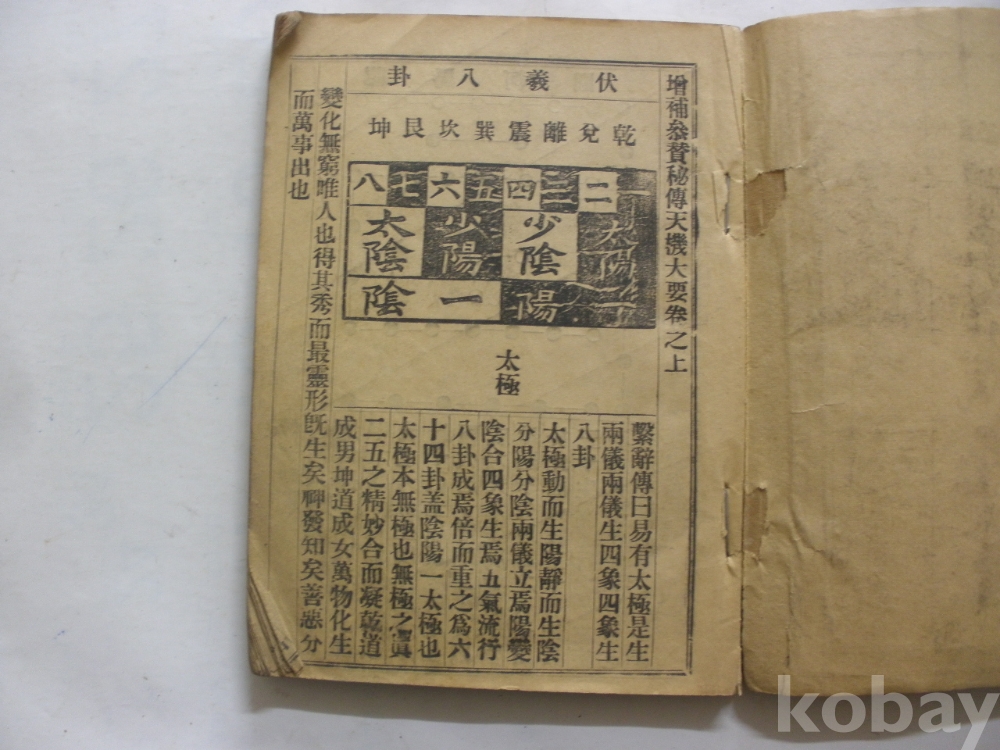 增補叅贊秘傳天機大要卷之上
伏羲八卦
乾兌離震巽坎艮坤
二三四五六七八
太陽少陰少陽太陰
陽一陰
太極
繫辭傳曰易有太極是生
兩儀兩儀生四象四象生
八卦
太極動而生陽靜而生陰
分陽分陰兩儀立焉陽變
陰合四象生焉五氣流行
八卦成焉倍而重之爲六
十四卦盖陰陽一太極也
太極本無極也無極之眞
二五之精妙合而凝乾道
成男坤道成女萬物化生
變化無窮唯人也得其秀而最靈形旣生矣神發知矣善惡分
而萬事出也
kobay